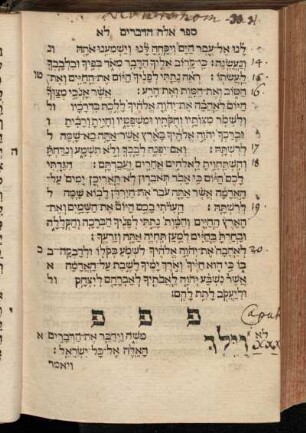 30. 31.
ספר אלה הדברים לא
לנו אל־עבר הים ויקחה לנו וישמענו אתה
14. ונעשנה׃ כי־קרוב אליך הדבר מאד בפיך ובלבבך
15. לעשתו׃ ראה נתתי לפניך היום את־החיים ואת־ טו
16. הטוב ואת־המות ואת־הרע׃ אשר אנכי מצוך
היום לאהבה את־יהוה אלהיך ללכת בדרכיו
ולשמר מצותיו וחקתיו ומשפטיו וחיית ורבית
וברכך יהוה אלהיך בארץ אשר־אתה בא־שמה
17. לרשתה׃ ואם־יפנה לבבך ולא תשמע ונדחת
18. והשתחוית לאלהים אחרים ועבדתם׃ הגדתי
לכם היום כי אבד תאבדון לא־תאריכן ימים על־
האדמה אשר אתה עבר את־הירדן לבוא שמה
19. לרשתה׃ העדתי בכם היום את־השמים ואת־
הארץ החיים והמות נתתי לפניך הברכה והקללה
ובחרת בחיים למען תחיה אתה וזרעך׃
20. לאהבה את־יהוה אלהיך לשמע בקלו ולדבקה־ כ
בו כי הוא חייך וארך ימיך לשבת על־האדמה
אשר נשבע יהוה לאבתיך לאברהם ליצחק
וליעקב לתת להם׃
פ פ פ
Caput
לא
XXXI
וילך משה וידבר את־הדברים א
האלה אל־כל־ישראל׃
ויאמר